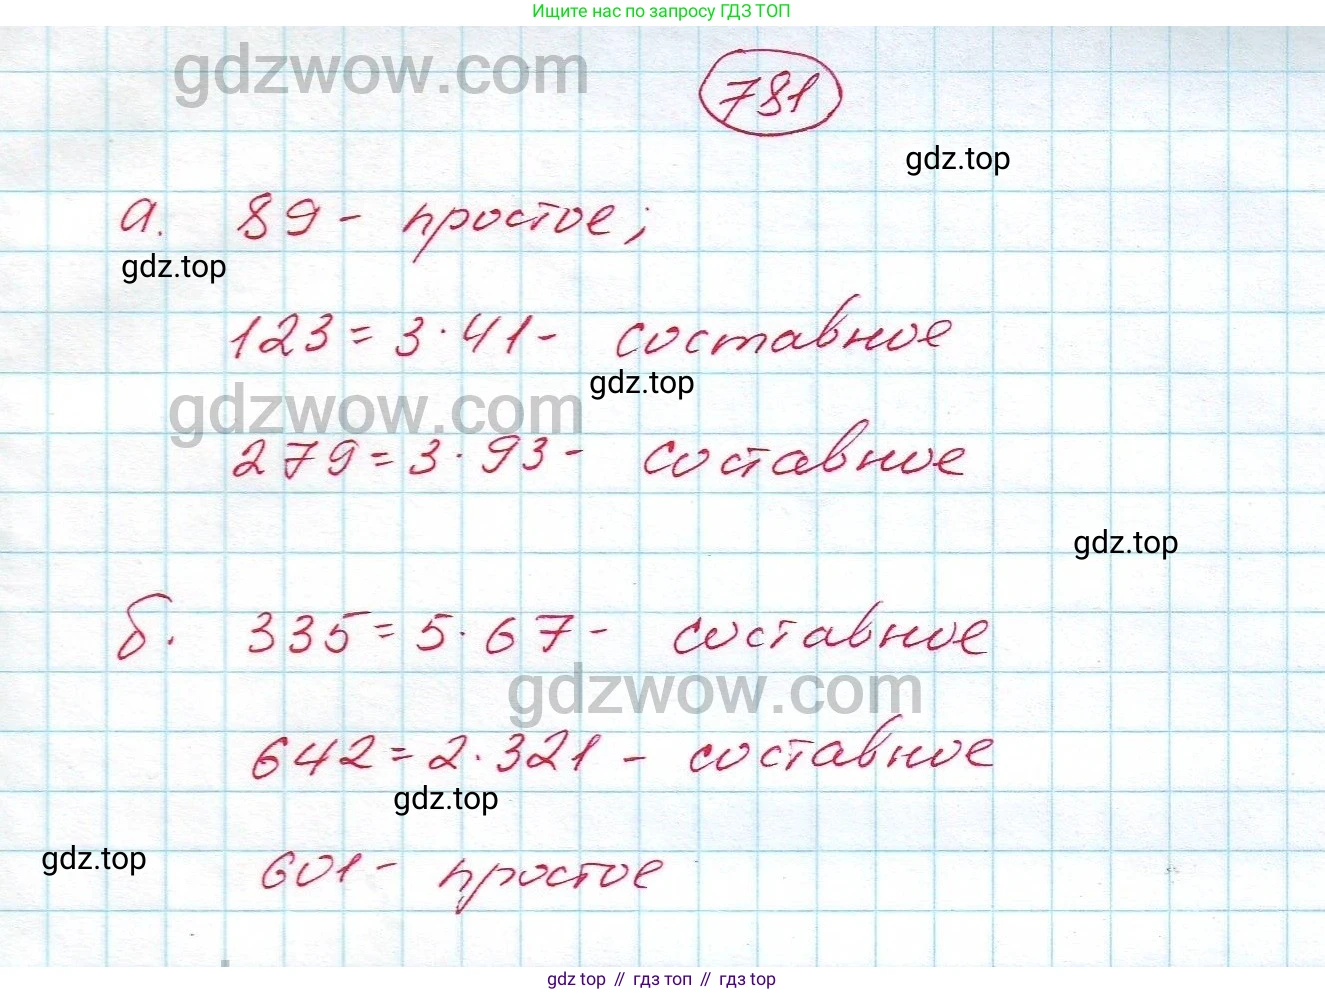 Ищите нас по запросу ГДЗ ТОП
gdzwow.com
781
gdz.top
а. 89 - простое;
gdz.top
123 = 3 · 41 - составное
gdz.top
gdzwow.com
279 = 3 · 93 - составное
gdz.top
б. 335 = 5 · 67 - составное
gdzwow.com
642 = 2 · 321 - составное
gdz.top
gdz.top
601 - простое
gdz top // гдз топ // гдз top